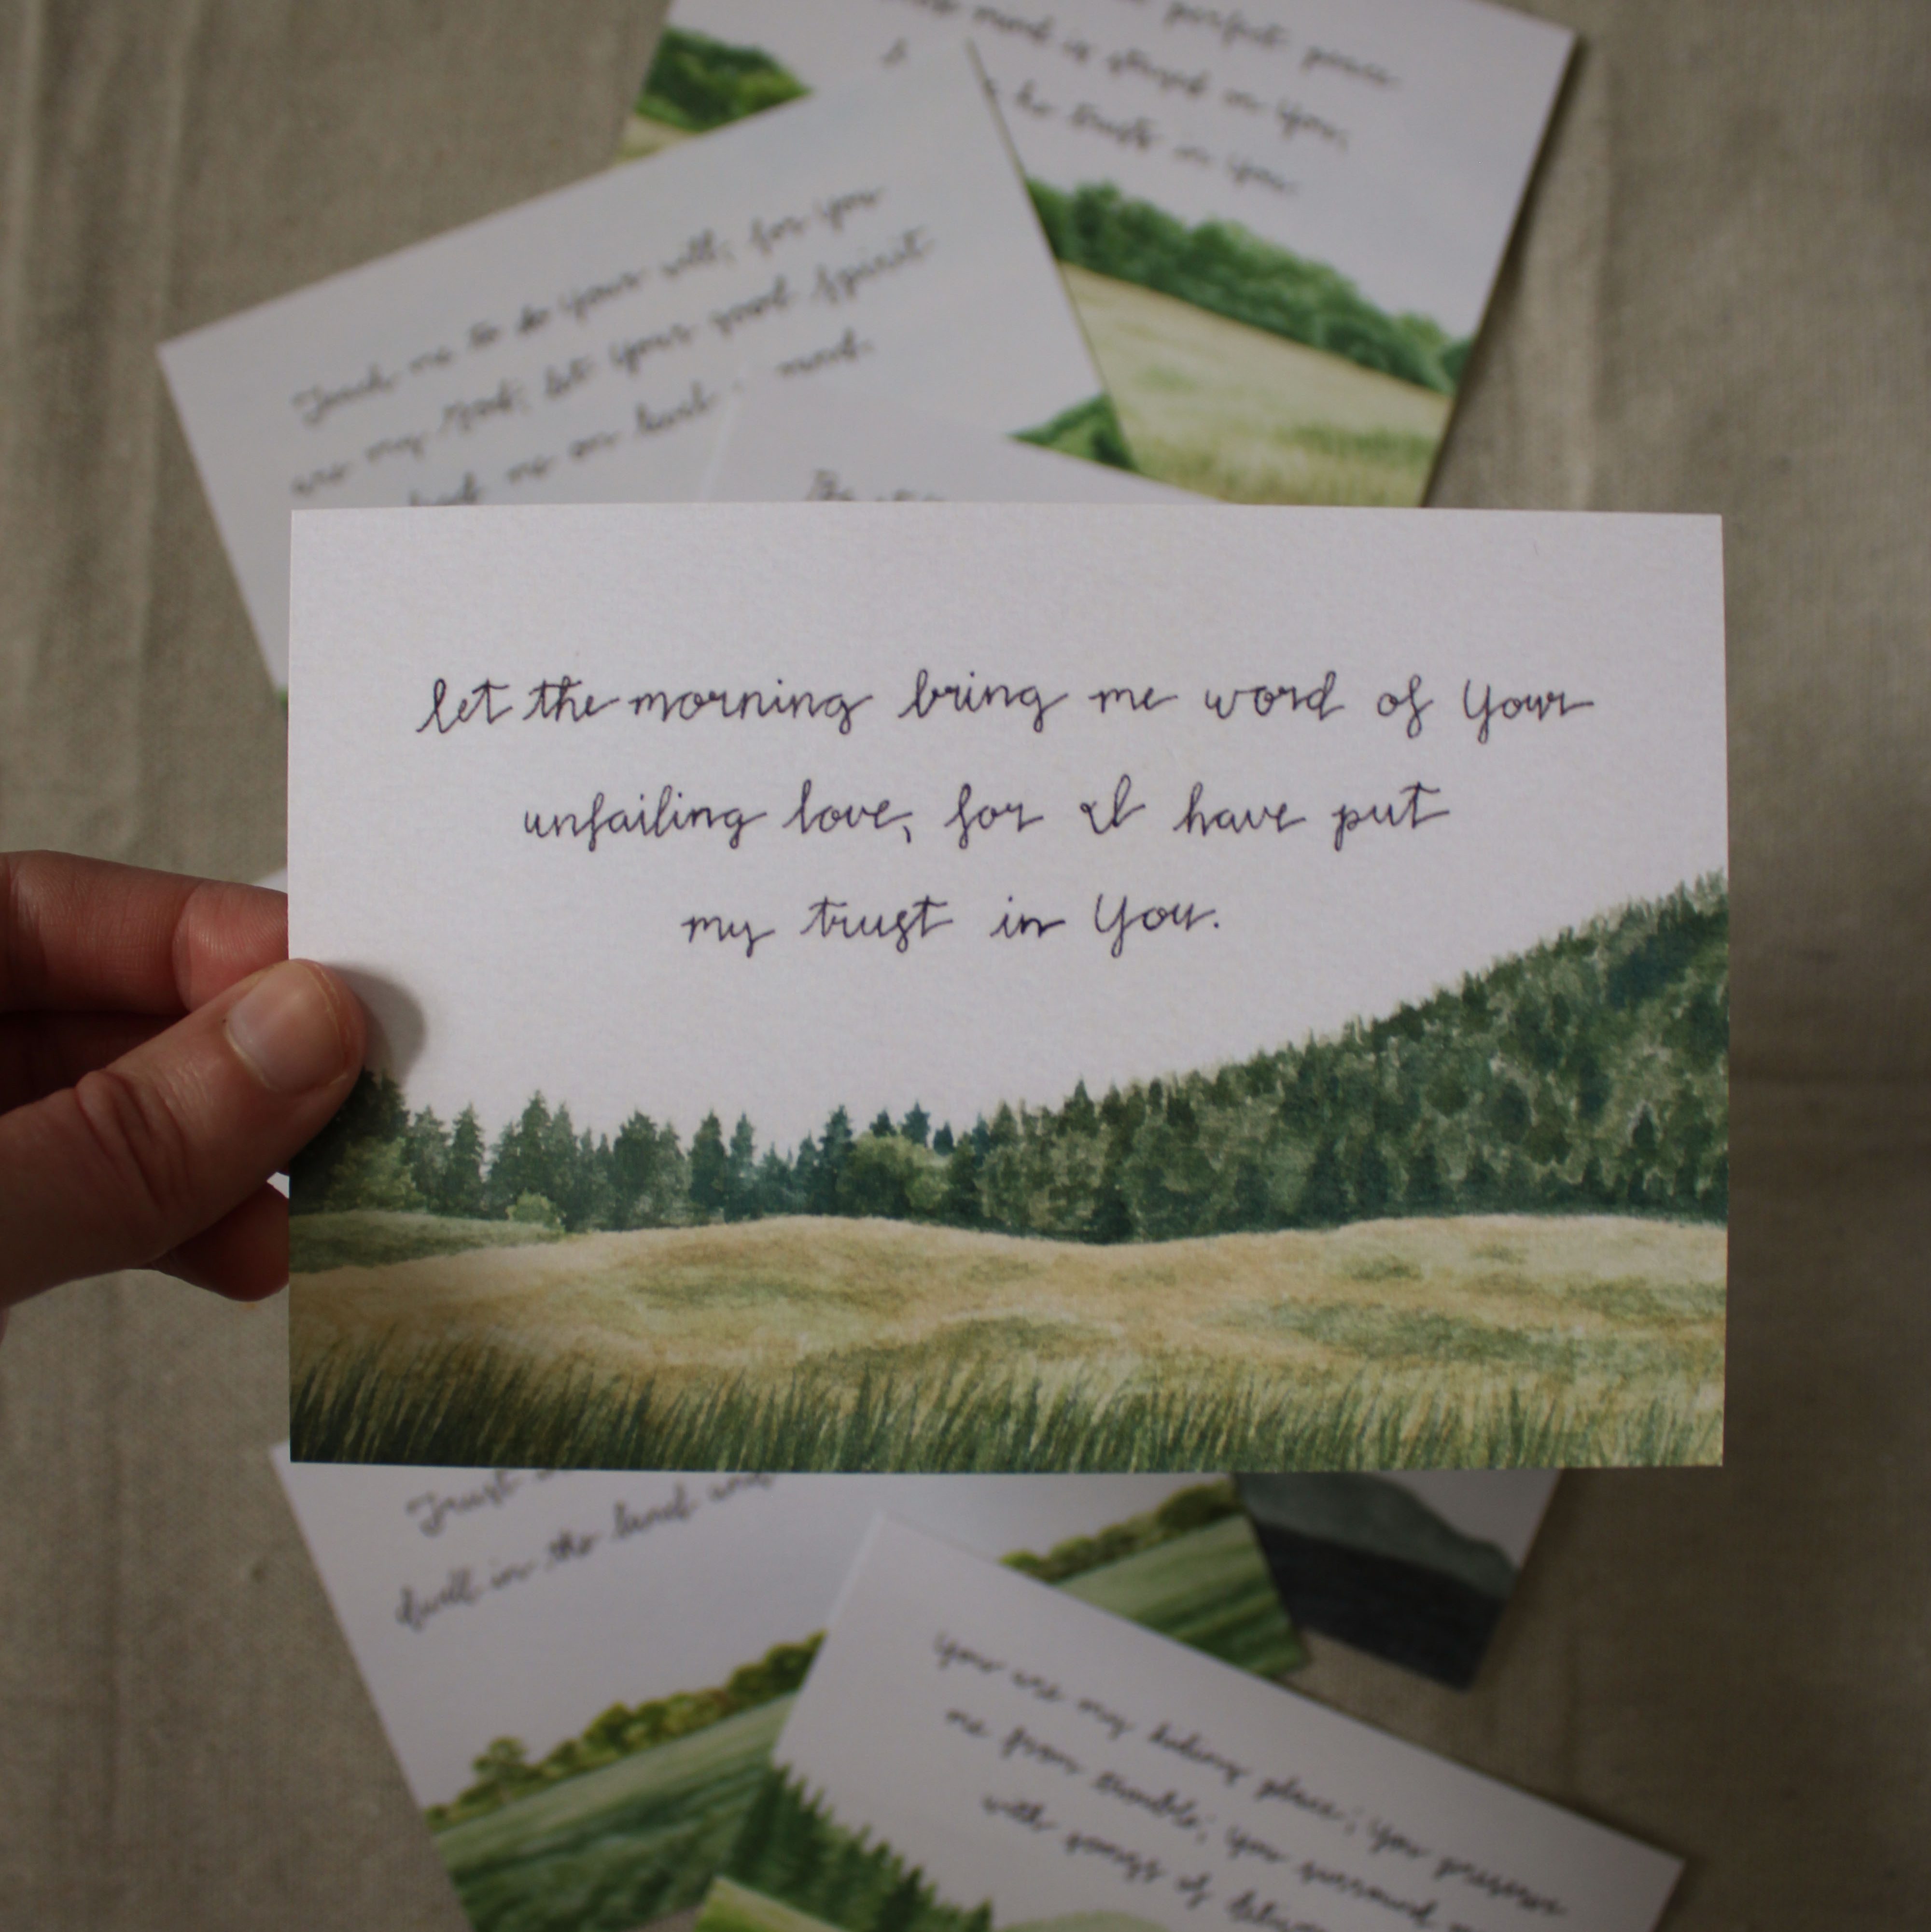 perfect peace
mind is stayed on you,
he trusts in you.
Teach me to do your will, for you
are my God; let your good Spirit
lead me on level
let the morning bring me word of Your
unfailing love, for I have put
my trust in You.
Trust
dwell in the land and
You are my hiding place; you preserve
me from trouble; you surround
with songs of